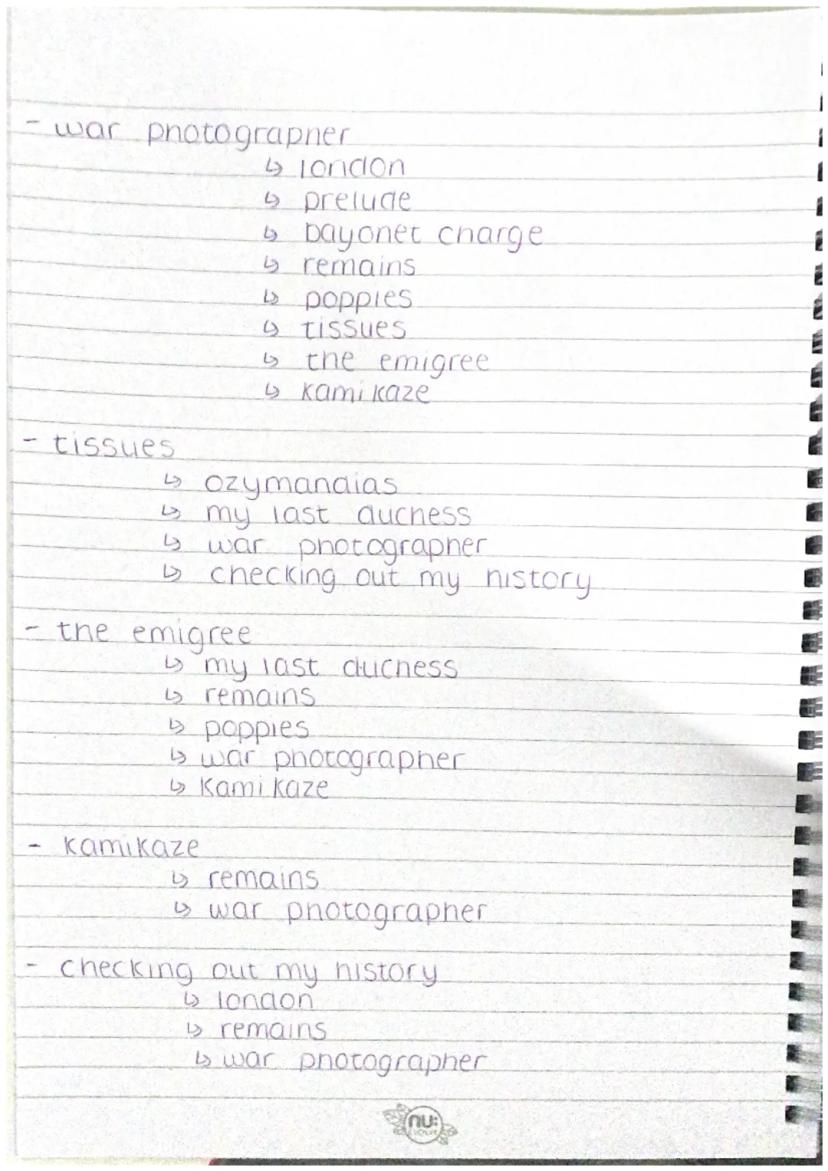 - war photographer
↳ london
↳ prelude
↳ bayonet charge
↳ remains
↳ poppies
↳ tissues
↳ the emigree
↳ kamikaze
- tissues
↳ ozymandias
↳ my last duchess
↳ war photographer
↳ checking out my history
- the emigree
↳ my last duchess
↳ remains
↳ poppies
↳ war photographer
↳ kamikaze
- kamikaze
↳ remains
↳ war photographer
- checking out my history
↳ london
↳ remains
↳ war photographer
nu: